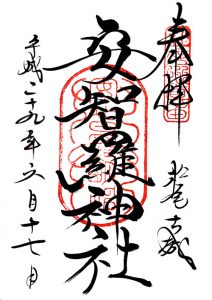 奉拝
安智羅神社
平成二十九年六月十七日